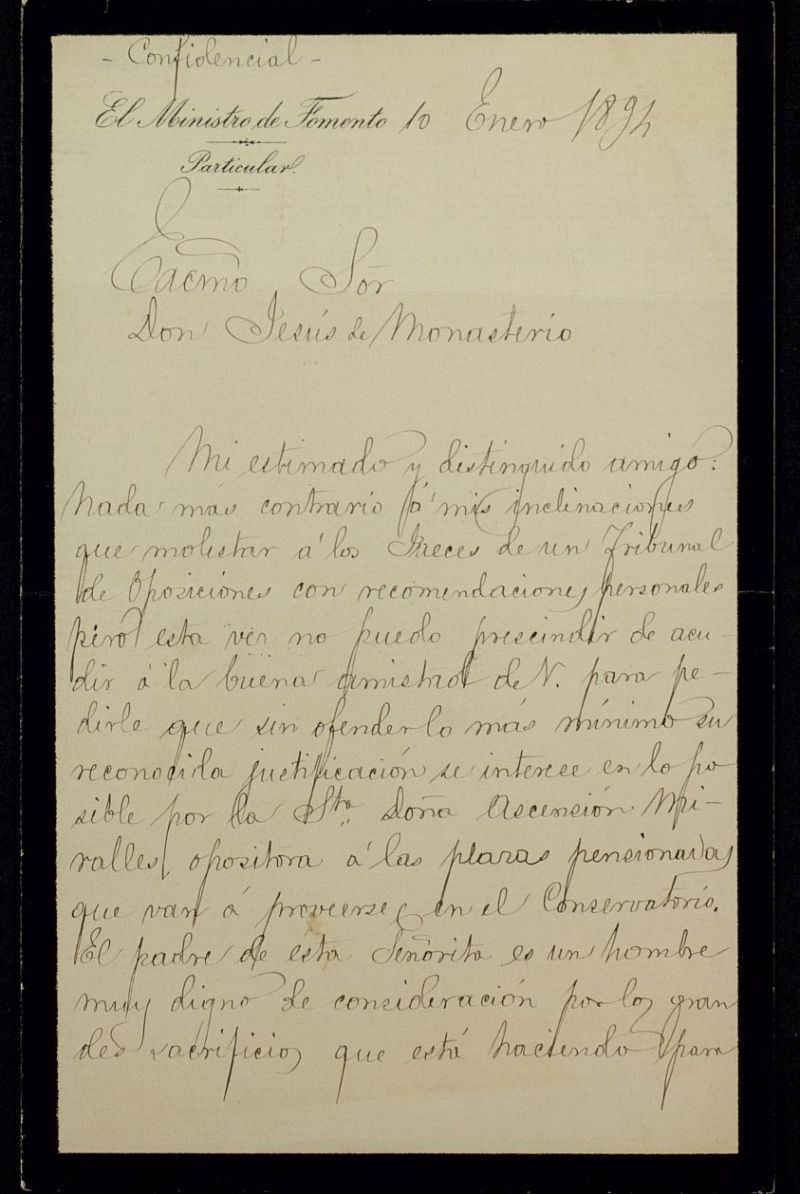 - Confidencial -
El Ministro de Fomento 10 Enero 1894
Particular.
Excmo Sor
Don Jesús de Monasterio
Mi estimado y distinguido amigo:
Nada más contrario á mis inclinaciones
que molestar á los Jueces de un Tribunal
de Oposiciones con recomendaciones personales
pero esta vez no puedo prescindir de acu-
dir á la buena amistad de V. para pe-
dirle que sin ofender lo más mínimo su
reconocida justificación se interese en lo po
sible por la Sta. Doña Ascensión Mi-
ralles, opositora á las plazas pensionadas
que van á proveerse en el Conservatorio.
El padre de esta Señorita es un hombre
muy digno de consideración por los gran
des sacrificios que está haciendo para